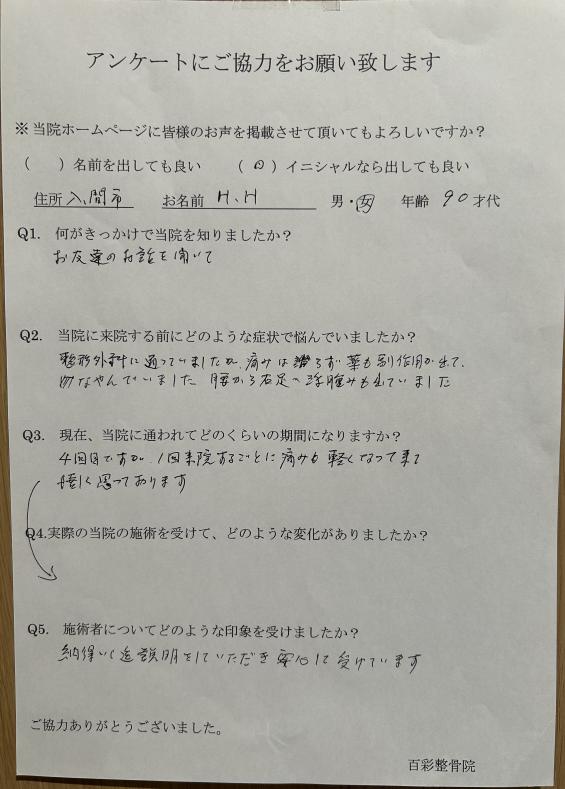 アンケートにご協力をお願い致します
※当院ホームページに皆様のお声を掲載させて頂いてもよろしいですか?
(　　)名前を出しても良い　　(○)イニシャルなら出しても良い
住所 入間市　お名前 H、H　男・女　年齢 90才代
Q1.　何がきっかけで当院を知りましたか?
お友達のお話を聞いて
Q2.　当院に来院する前にどのような症状で悩んでいましたか?
整形外科に通っていましたが、痛みは治らず 薬も副作用が出て、
なやんでいました 腰から右足へ 浮腫みも出ていました
Q3.　現在、当院に通われてどのくらいの期間になりますか?
4回目ですが、1回来院するごとに痛みも軽くなって来て
嬉しく思っております
Q4.実際の当院の施術を受けて、どのような変化がありましたか?
Q5.　施術者についてどのような印象を受けましたか?
納得いく迄説明をしていただき安心して受けています
ご協力ありがとうございました。
百彩整骨院